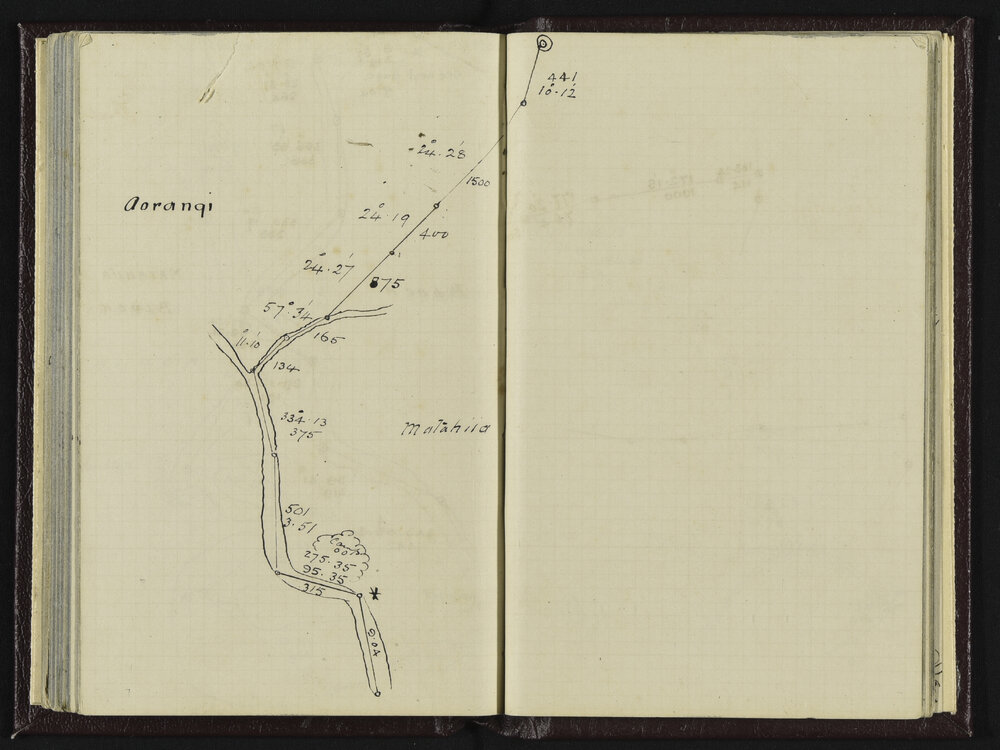 441
10°·12'
24°·28'
1500
Aorangi
24°·19
400
24°·27'
875
57°·34'
165
11°·10'
134
334°·13
375
Matahiia
501
3·51
275·35
95·35
315
9·04